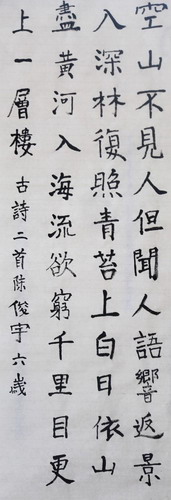 空山不見人但聞人語響返景
入深林復照青苔上白日依山
盡黃河入海流欲窮千里目更
上一層樓 古詩二首陈俊宇六歲